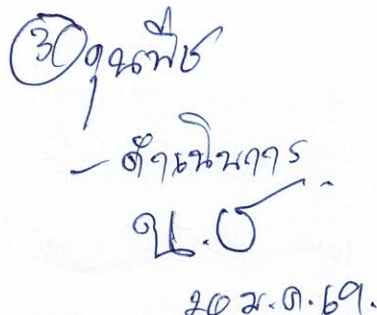 ③ คุณพืช
- ดำเนินการ
น.ช
20 ม.ค. 69.